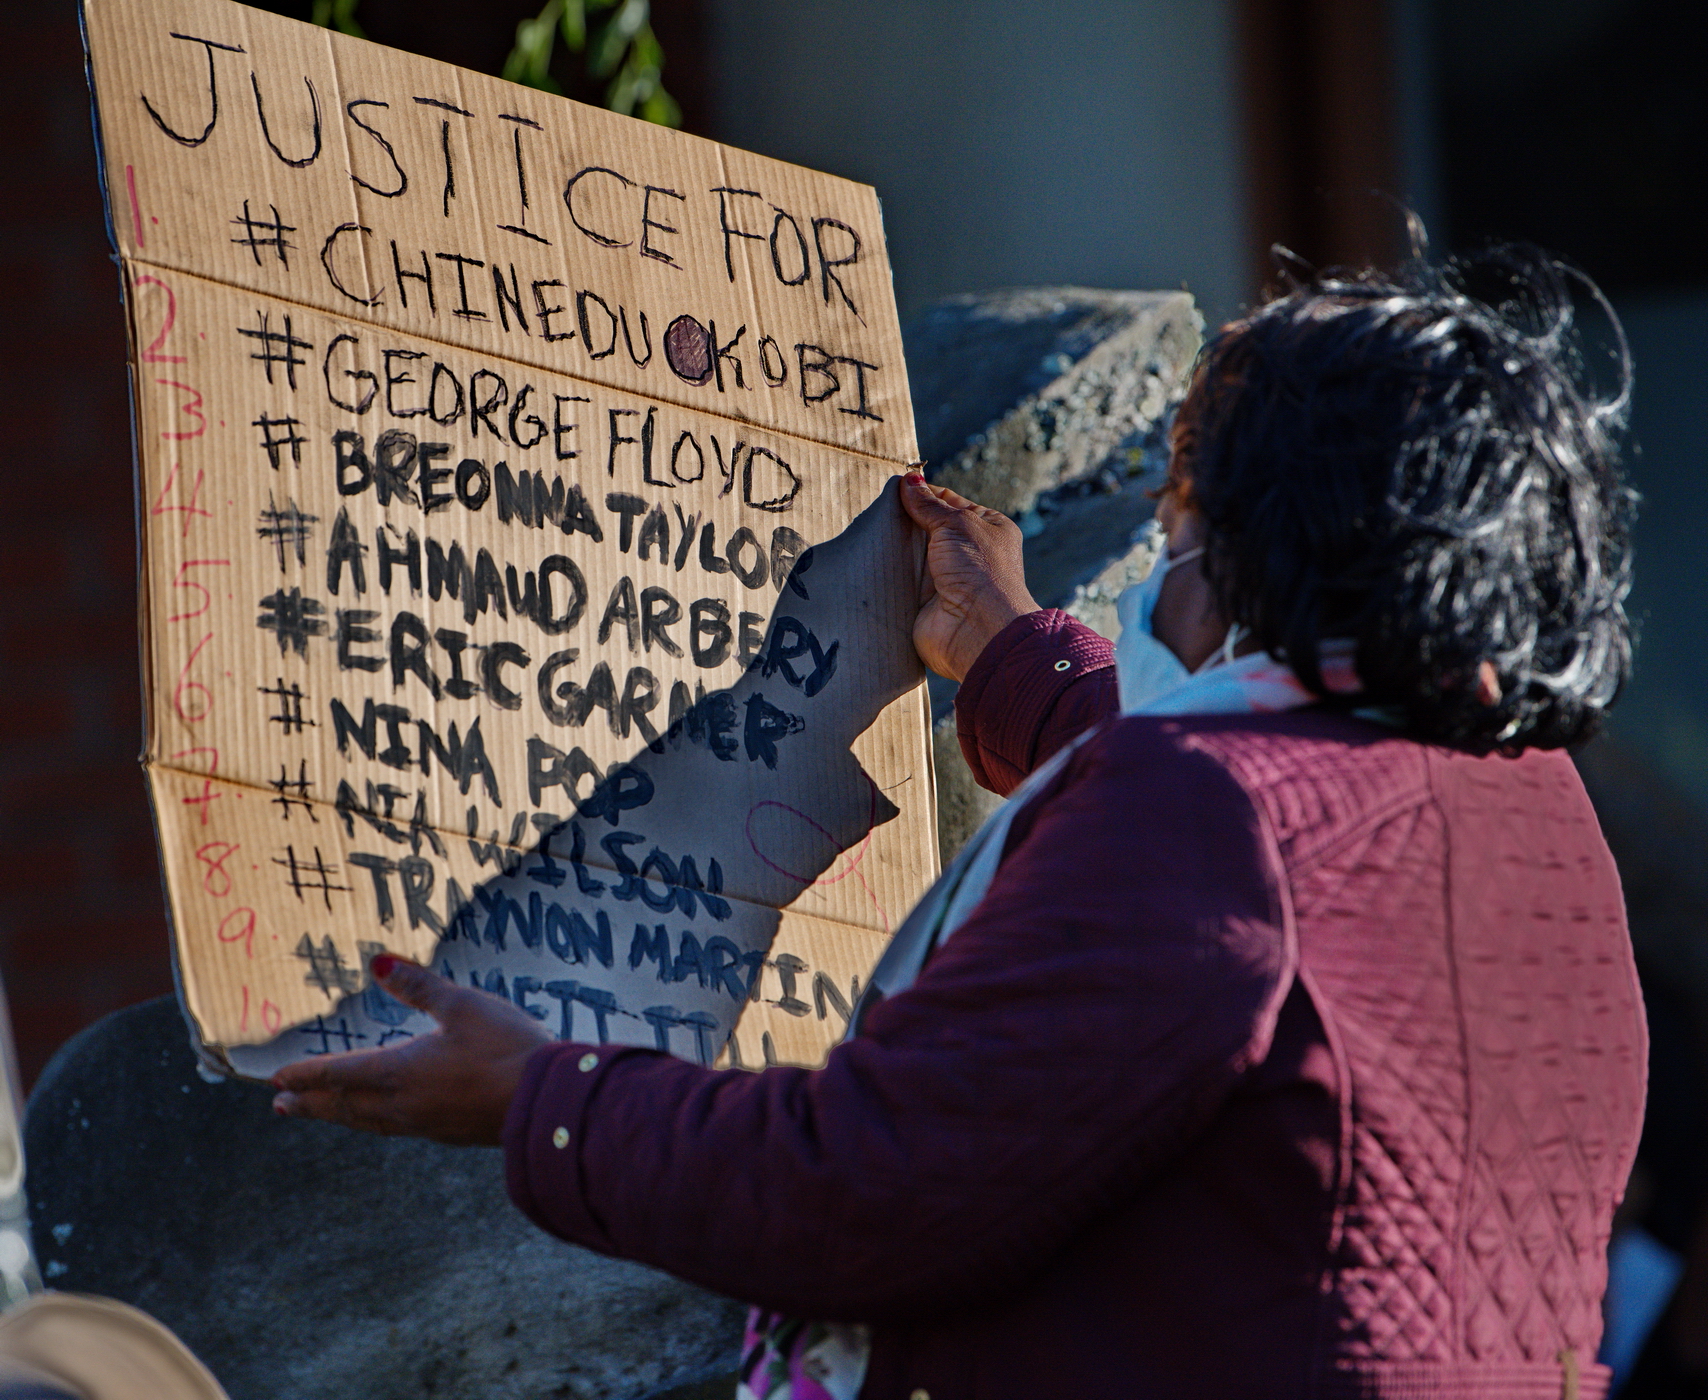 JUSTICE FOR
1. #CHINEDU OKOBI
2. #GEORGE FLOYD
3. #BREONNA TAYLOR
4. #AHMAUD ARBERY
5. #ERIC GARNER
6. #NINA POP
7. #NIA WILSON
8. #TRAYVON MARTIN
9. # TILL
10. #